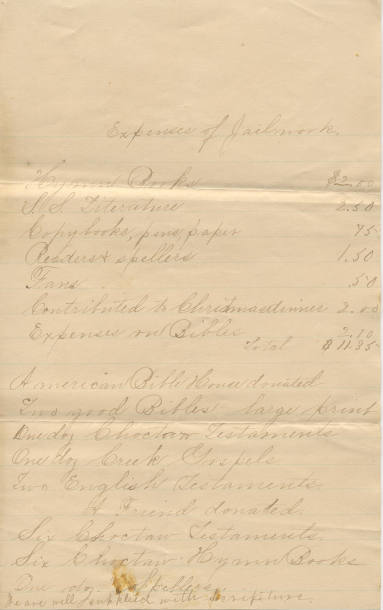 Expenses of Jailwork.
Hymn Books $2.00
S.S. Literature 2.50
Copybooks, pens, paper 75
Readers & spellers 1.50
Fans .50
Contributed to Christmas dinner 2.00
Expenses on Bibles 2.10
Total $11.35
American Bible House donated
Two good Bibles large print
One doz Choctaw Testaments
One doz Creek Gospels
Two English Testaments.
A Friend donated.
Six Choctaw Testaments.
Six Choctaw Hymn Books
One doz Spellers
are well supplied with scripture.